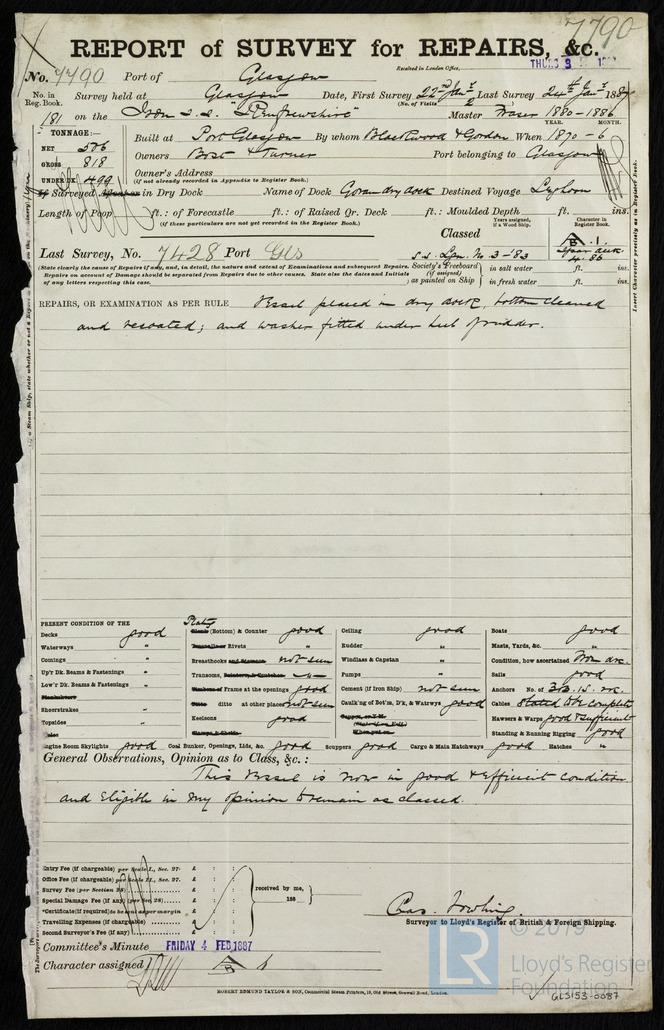 7790
REPORT of SURVEY for REPAIRS, &c.
Received in London Office,
THURS 3
No. 7790 Port of Glasgow
No. in Reg. Book. Survey held at Glasgow Date, First Survey 22nd Jany Last Survey 24th Jany 1887
(No. of Visits 2)
181 on the Iron s.s. "Renfrewshire" Master Fraser 1880-1886
YEAR. MONTH.
TONNAGE:—
NET 506
GROSS 818
UNDER DK. 499
Built at Port Glasgow By whom Blackwood & Gordon When 1870-6
Owners Burt & Turner Port belonging to Glasgow
Owner's Address
(if not already recorded in Appendix to Register Book.)
Surveyed in Dry Dock Name of Dock Govan dry dock Destined Voyage
Length of Poop ft.: of Forecastle ft.: of Raised Qr. Deck ft.: Moulded Depth ft. ins.
(if these particulars are not yet recorded in the Register Book.)
Years assigned, if a Wood Ship.
Character in Register Book.
Classed
Last Survey, No. 7428 Port Gls
s.s. Lpn. No. 3-83
Spar deck
4.86
(State clearly the cause of Repairs if any, and, in detail, the nature and extent of Examinations and subsequent Repairs.
Repairs on account of Damage should be separated from Repairs due to other causes. State also the dates and Initials
of any letters respecting this case.
Society's Freeboard (if assigned) as painted on Ship
in salt water ft. ins.
in fresh water ft. ins.
REPAIRS, OR EXAMINATION AS PER RULE Vessel placed in dry dock, bottom cleaned
and recoated; and washer fitted under heel of rudder.
PRESENT CONDITION OF THE
Decks good
Waterways "
Comings "
Up'r Dk. Beams & Fastenings "
Low'r Dk. Beams & Fastenings "
Sheerstrakes "
Topsides "
Plates (Bottom) & Counter good
Rivets "
Breasthooks not seen
Transoms,
Frame at the openings good
ditto at other places not seen
Keelsons good
Ceiling good
Rudder "
Windlass & Capstan "
Pumps "
Cement (if Iron Ship) not seen
Caulk'ng of Bot'm, D'k, & Watrwys good
Boats good
Masts, Yards, &c. "
Condition, how ascertained From dk.
Sails good
Anchors No. of 3 B. 1 S.
Cables Stated to be complete
Hawsers & Warps good & sufficient
Standing & Running Rigging good
Engine Room Skylights good Coal Bunker, Openings, Lids, &c. good Scuppers good Cargo & Main Hatchways good Hatches "
General Observations, Opinion as to Class, &c.:
This Vessel is now in good & efficient condition
and Eligible in my opinion to remain as classed.
Entry Fee (if chargeable) per Scale I., Sec. 27. £ : :
Office Fee (if chargeable) per Scale II., Sec. 27. £ : :
Survey Fee (per Section 28) £ : :
Special Damage Fee (if any) (per Sec. 28) £ : :
*Certificate (if required) to be sent as per margin £ : :
Travelling Expenses (if chargeable) £ : :
Second Surveyor's Fee (if any) £ : :
received by me,
188
Surveyor to Lloyd's Register of British & Foreign Shipping.
Committee's Minute FRIDAY 4 FEB 1887
Character assigned
ROBERT EDMUND TAYLOR & SON, Commercial Steam Printers, 19, Old Street, Goswell Road, London.
LR
© 2019
Lloyd's Register
Foundation
GLS153-0087